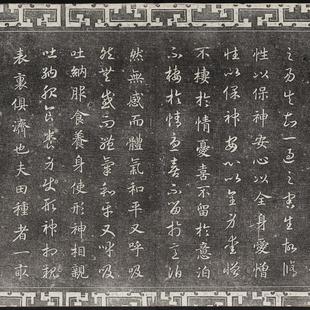 之易失知一過之害生故修
性以保神安心以全身愛憎
性以保神安心以全身愛憎
不棲於情憂喜不留於意泊
不棲於情憂喜不留於意泊
然無感而體氣和平又呼吸
然無感而體氣和平又呼吸
吐納服食養身使形神相親
吐納服食養身使形神相親
表裏俱濟也夫田種者一畝